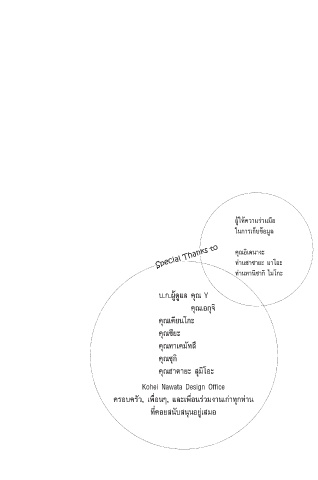 ผู้ให้ความร่วมมือ
ในการเก็บข้อมูล
คุณอิเดนางะ
ท่านฮาซาเอะ มาโอะ
ท่านทานิซากิ ไมโกะ
Special Thanks to
บ.ก.ผู้ดูแล คุณ Y
คุณเอกุจิ
คุณเคียนโกะ
คุณซียะ
คุณทาเคมัทสึ
คุณซุกิ
คุณฮาตายะ สุมิโอะ
Kohei Nawata Design Office
ครอบครัว, เพื่อนๆ, และเพื่อนร่วมงานเก่าทุกท่าน
ที่คอยสนับสนุนอยู่เสมอ